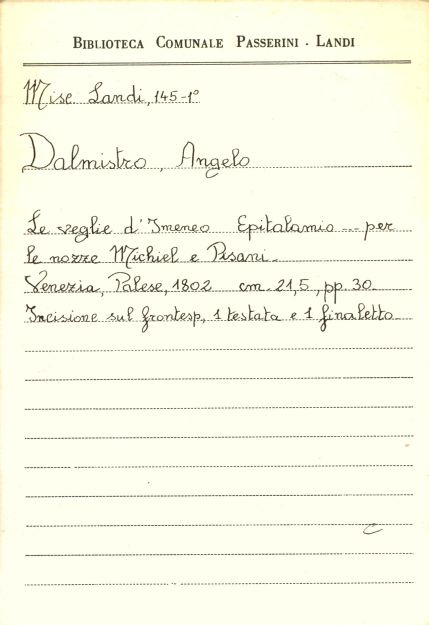 BIBLIOTECA COMUNALE PASSERINI - LANDI
Misc. Landi, 145-1°
Dalmistro, Angelo
Le veglie d'Imeneo Epitalamio ... per
le nozze Michiel e Pisani.
Venezia, Palese, 1802 cm. 21,5, pp. 30.
Incisione sul frontesp, 1 testata e 1 finaletto
C